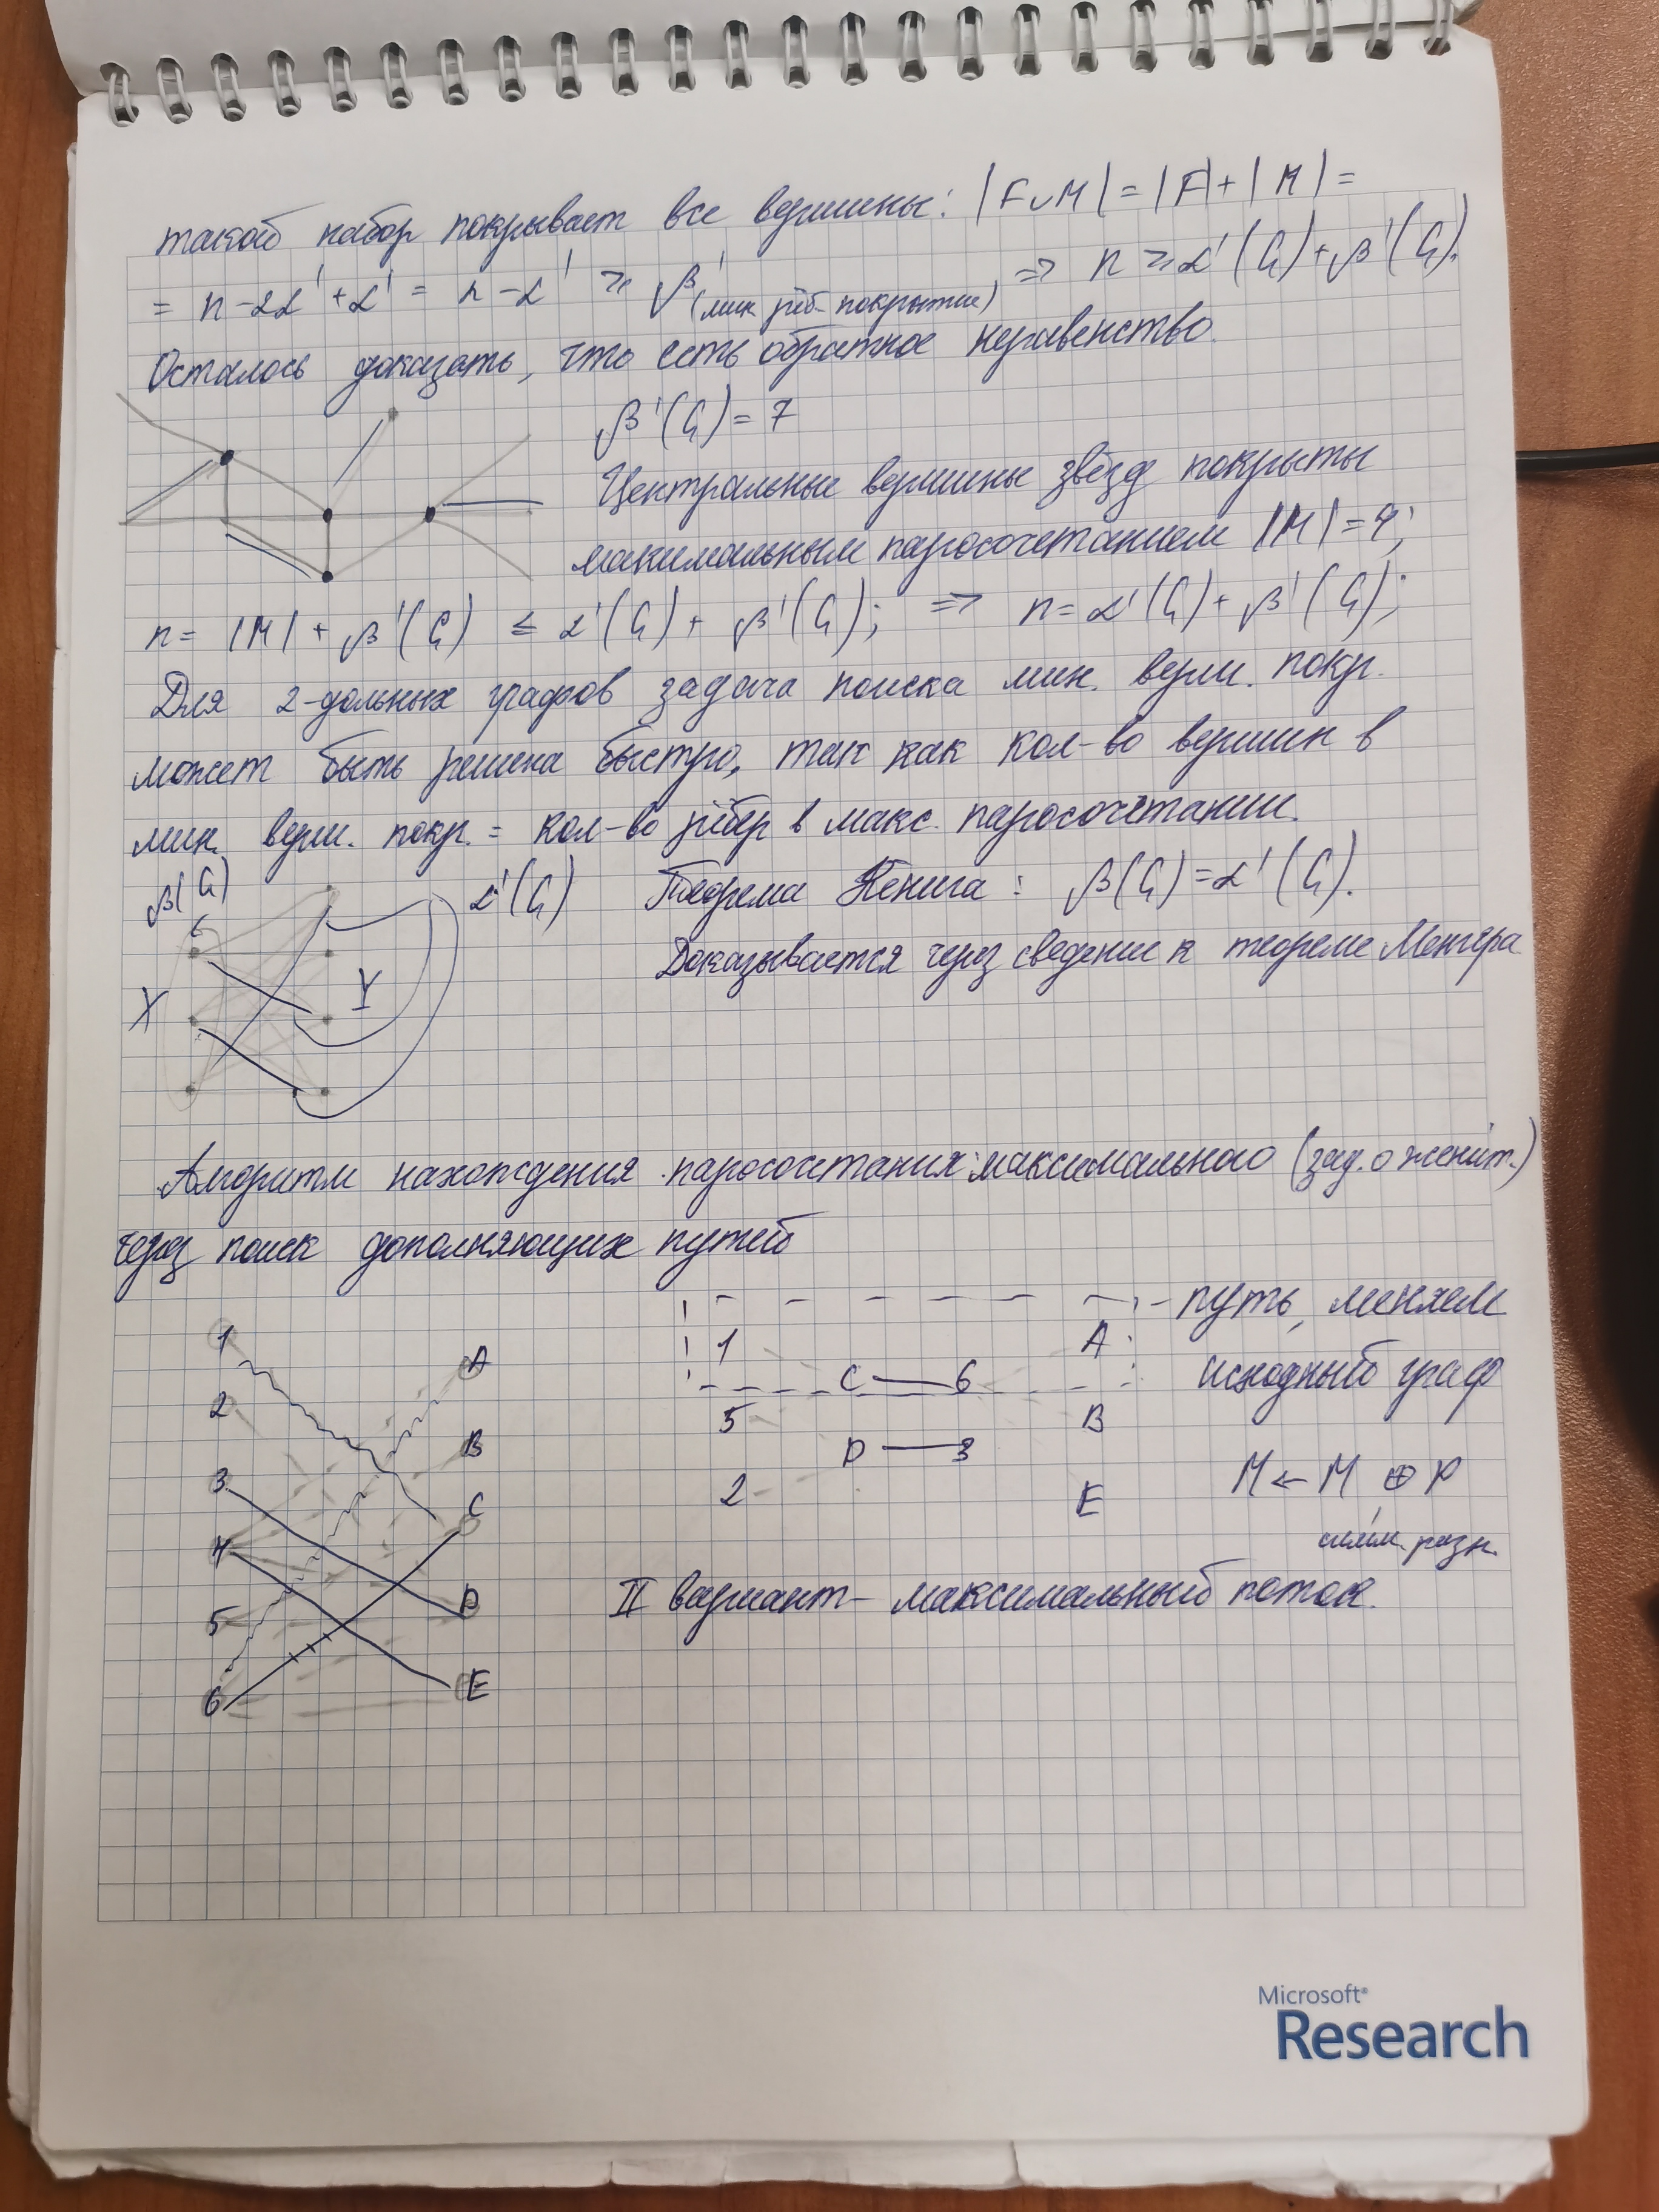 такой набор покрывает все вершины: |F∪M| = |F| + |M| =
= n - 2α' + α' = n - α' ≥ β' (мин. рёб. покрытие) ⇒ n ≥ α'(G) + β'(G).
Осталось доказать, что есть обратное неравенство.
β'(G) = 7
Центральные вершины звёзд покрыты
максимальным паросочетанием |M| = 4;
n = |M| + β'(G) ≤ α'(G) + β'(G); ⇒ n = α'(G) + β'(G);
Для 2-дольных графов задача поиска мин. верш. покр.
может быть решена быстро, так как кол-во вершин в
мин. верш. покр. = кол-во рёбер в макс. паросочетании.
β(G) α'(G) Теорема Кенига: β(G) = α'(G).
Доказывается через сведение к теореме Менгера
X Y
Алгоритм нахождения паросочетания максимального (зад. о женит.)
через поиск дополняющих путей
1 A
2 B
3 C
4 D
5 E
6
1 A - путь, меняем
C — 6 исходный граф
5 B
D — 3
2 E M ← M ⊕ P
симм. разн.
II вариант - максимальный поток.
Microsoft®
Research